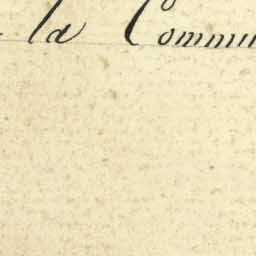 la Commu